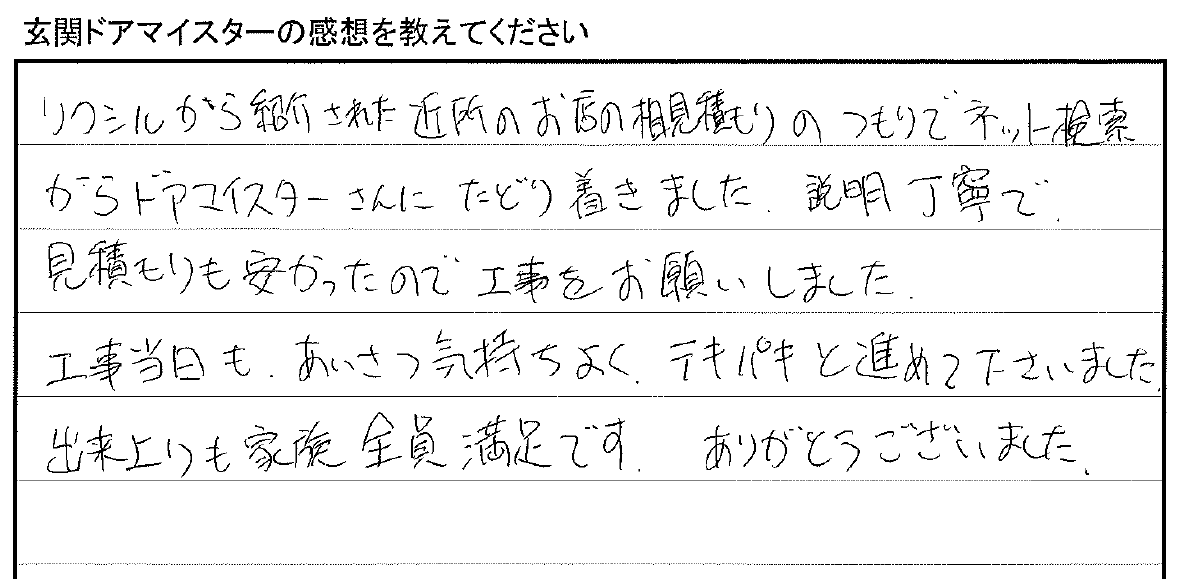 玄関ドアマイスターの感想を教えてください
リクシルから紹介された近所のお店の相見積もりのつもりでネット検索
からドアマイスターさんにたどり着きました。説明丁寧で、
見積もりも安かったので工事をお願いしました。
工事当日も、あいさつ気持ちよく、テキパキと進めて下さいました。
出来上りも家族全員満足です。ありがとうございました。